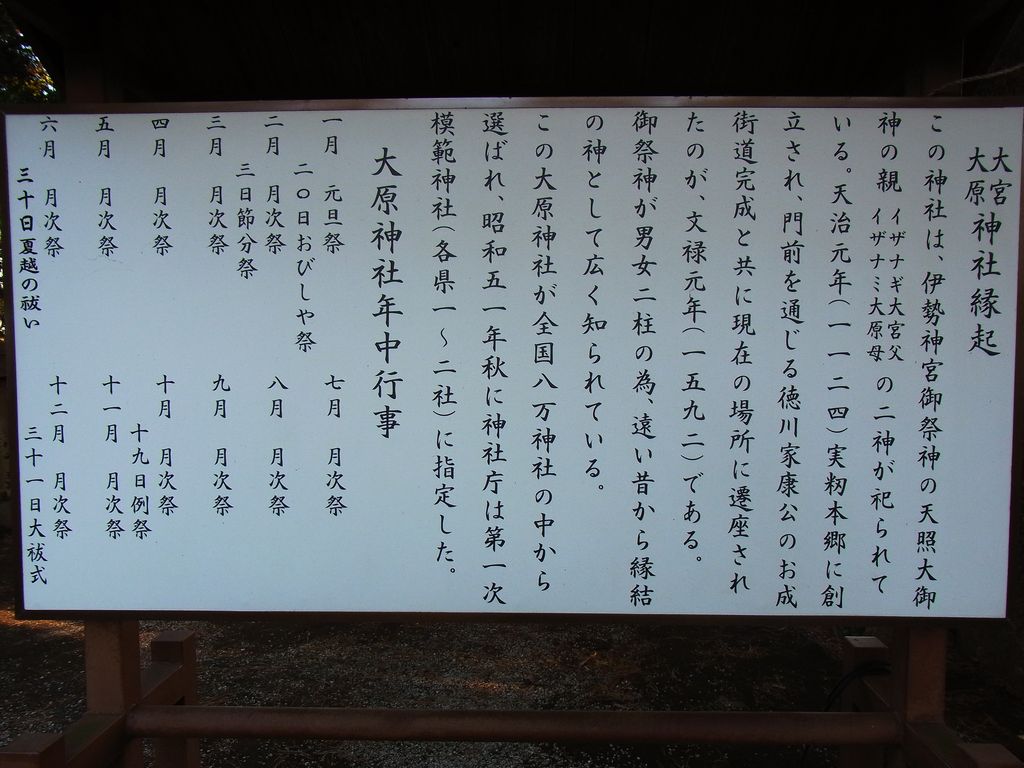 大宮
大原
神社縁起
この神社は、伊勢神宮御祭神の天照大御
神の親 イザナギ大宮父
イザナミ大原母 の二神が祀られて
いる。天治元年(一一二四)実籾本郷に創
立され、門前を通じる徳川家康公のお成
街道完成と共に現在の場所に遷座され
たのが、文禄元年(一五九二)である。
御祭神が男女二柱の為、遠い昔から縁結
の神として広く知られている。
この大原神社が全国八万神社の中から
選ばれ、昭和五一年秋に神社庁は第一次
模範神社(各県一〜二社)に指定した。
大原神社年中行事
一月 元旦祭
二〇日おびしや祭
二月 月次祭
三日節分祭
三月 月次祭
四月 月次祭
五月 月次祭
六月 月次祭
三十日夏越の祓い
七月 月次祭
八月 月次祭
九月 月次祭
十月 月次祭
十九日例祭
十一月 月次祭
十二月 月次祭
三十一日大祓式